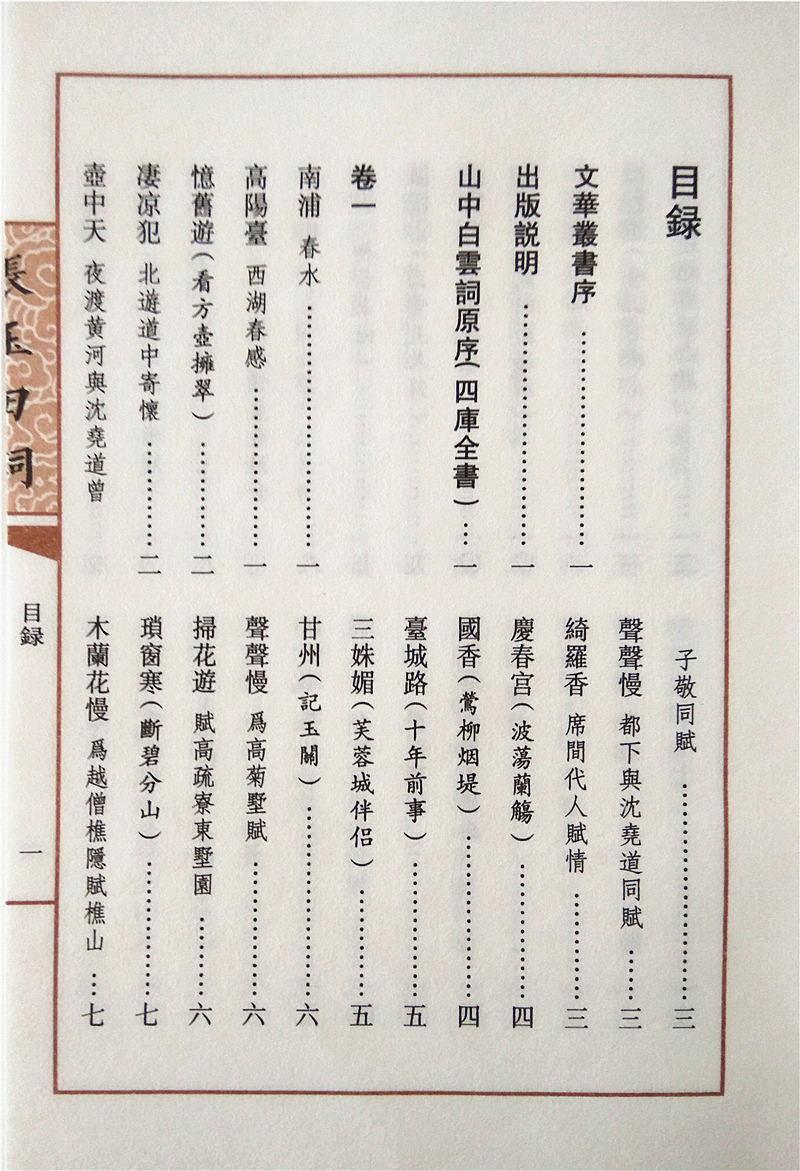 目録
文華叢書序…………………………一
出版説明…………………………一
山中白雲詞原序(四庫全書)…一
卷一
南浦 春水…………………………一
高陽臺 西湖春感………………一
憶舊遊(看方壺擁翠)…………二
凄凉犯 北遊道中寄懷…………二
壺中天 夜渡黄河與沈堯道曾
子敬同賦…………………………三
聲聲慢 都下與沈堯道同賦……三
綺羅香 席間代人賦情…………三
慶春宫(波蕩蘭觴)……………四
國香(鶯柳烟堤)………………四
臺城路(十年前事)……………五
三姝媚(芙蓉城伴侣)…………五
甘州(記玉關)…………………六
聲聲慢 爲高菊墅賦……………六
掃花遊 賦高疏寮東墅園………六
瑣窗寒(斷碧分山)……………七
木蘭花慢 爲越僧樵隱賦樵山…七
張玉田詞
目録
一